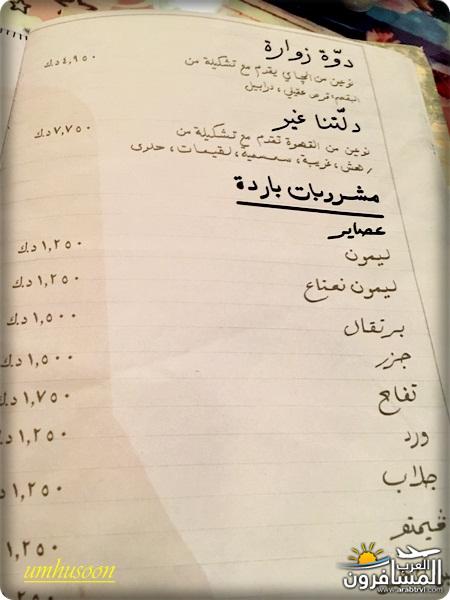 دوّة زوارة ٤,٩٥٠ د.ك
نوعين من الچاي يقدم مع تشكيلة من
البقصم، قرص عقيلي، درابيل
دلّتنا غير ٧,٧٥٠ د.ك
نوعين من القهوة تقدم مع تشكيلة من
رهش، غريبة، سمسمية، لقيمات، حلوى
مشروبات باردة
عصاير
ليمون ١,٢٥٠ د.ك
ليمون نعناع ١,٢٥٠ د.ك
برتقال ١,٥٠٠ د.ك
جزر ١,٥٠٠ د.ك
تفاح ١,٧٥٠ د.ك
ورد ١,٢٥٠ د.ك
جلاب ١,٢٥٠
ڤيمتو ١,٢٥٠
umhusoon
العرب المسافرون
www.arabtrvl.com